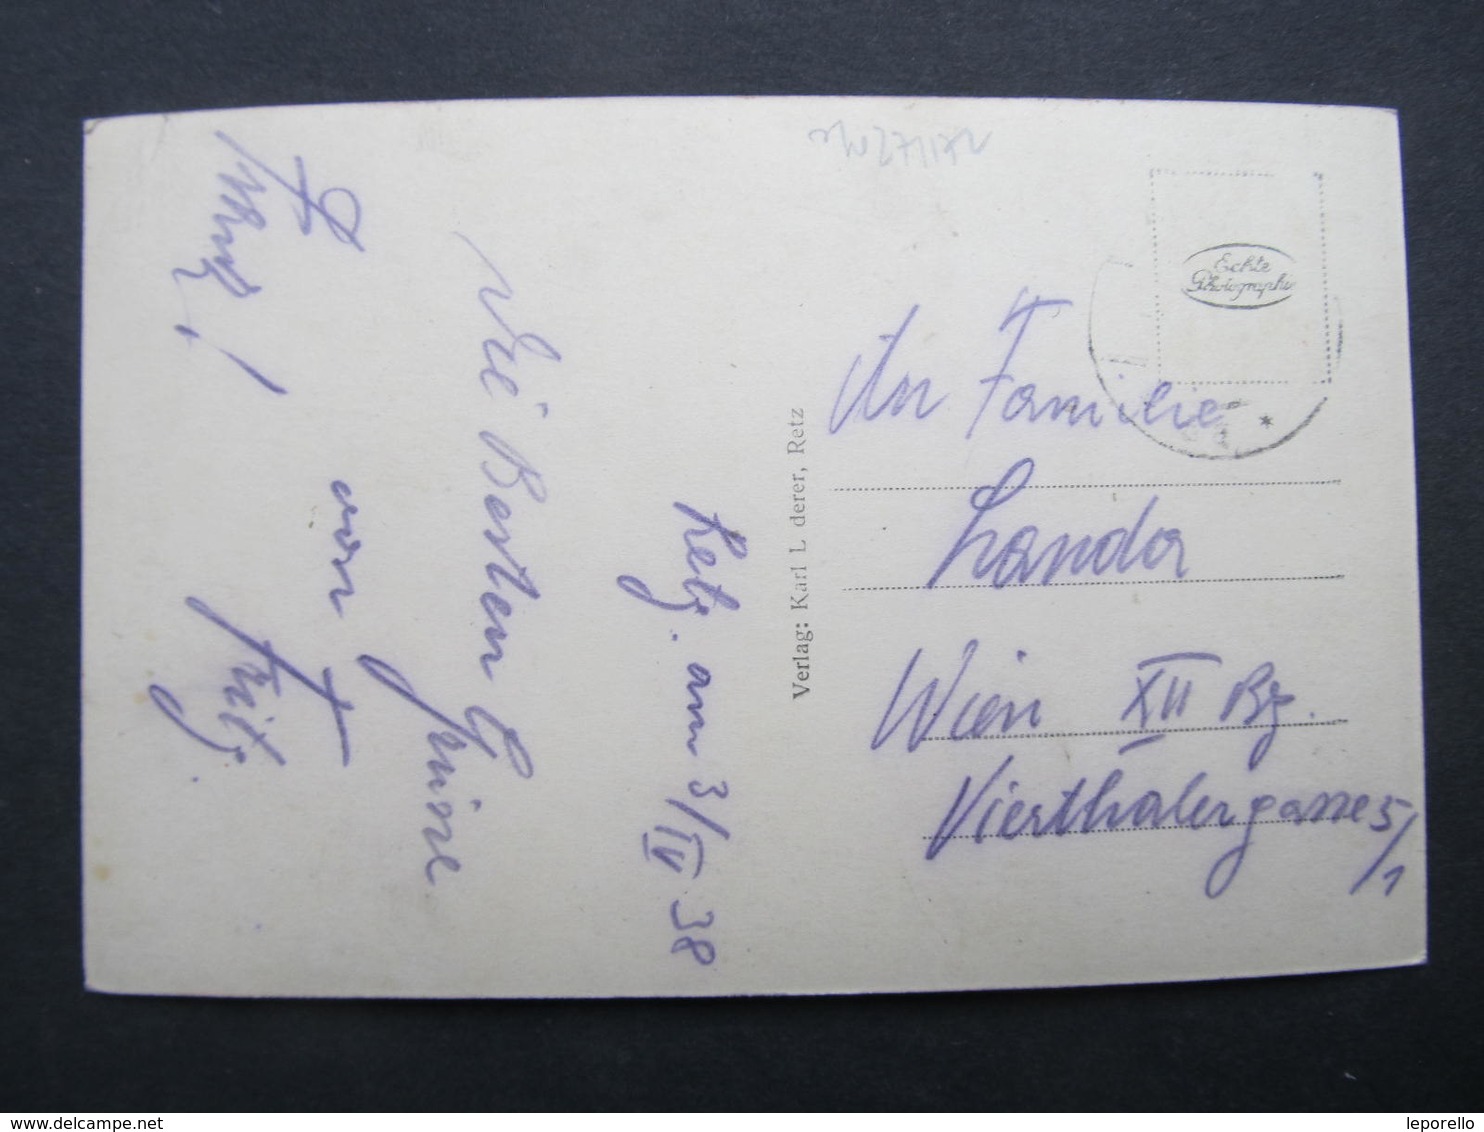 Retz. am 3/IV 38
Die Besten Grüsse
von
Fritz.
!
Verlag: Karl L derer, Retz
Echte
Photographie
An Familie
Landa
Wien XII Bz.
Vierthalergasse 5/1
delcampe.net
leporello